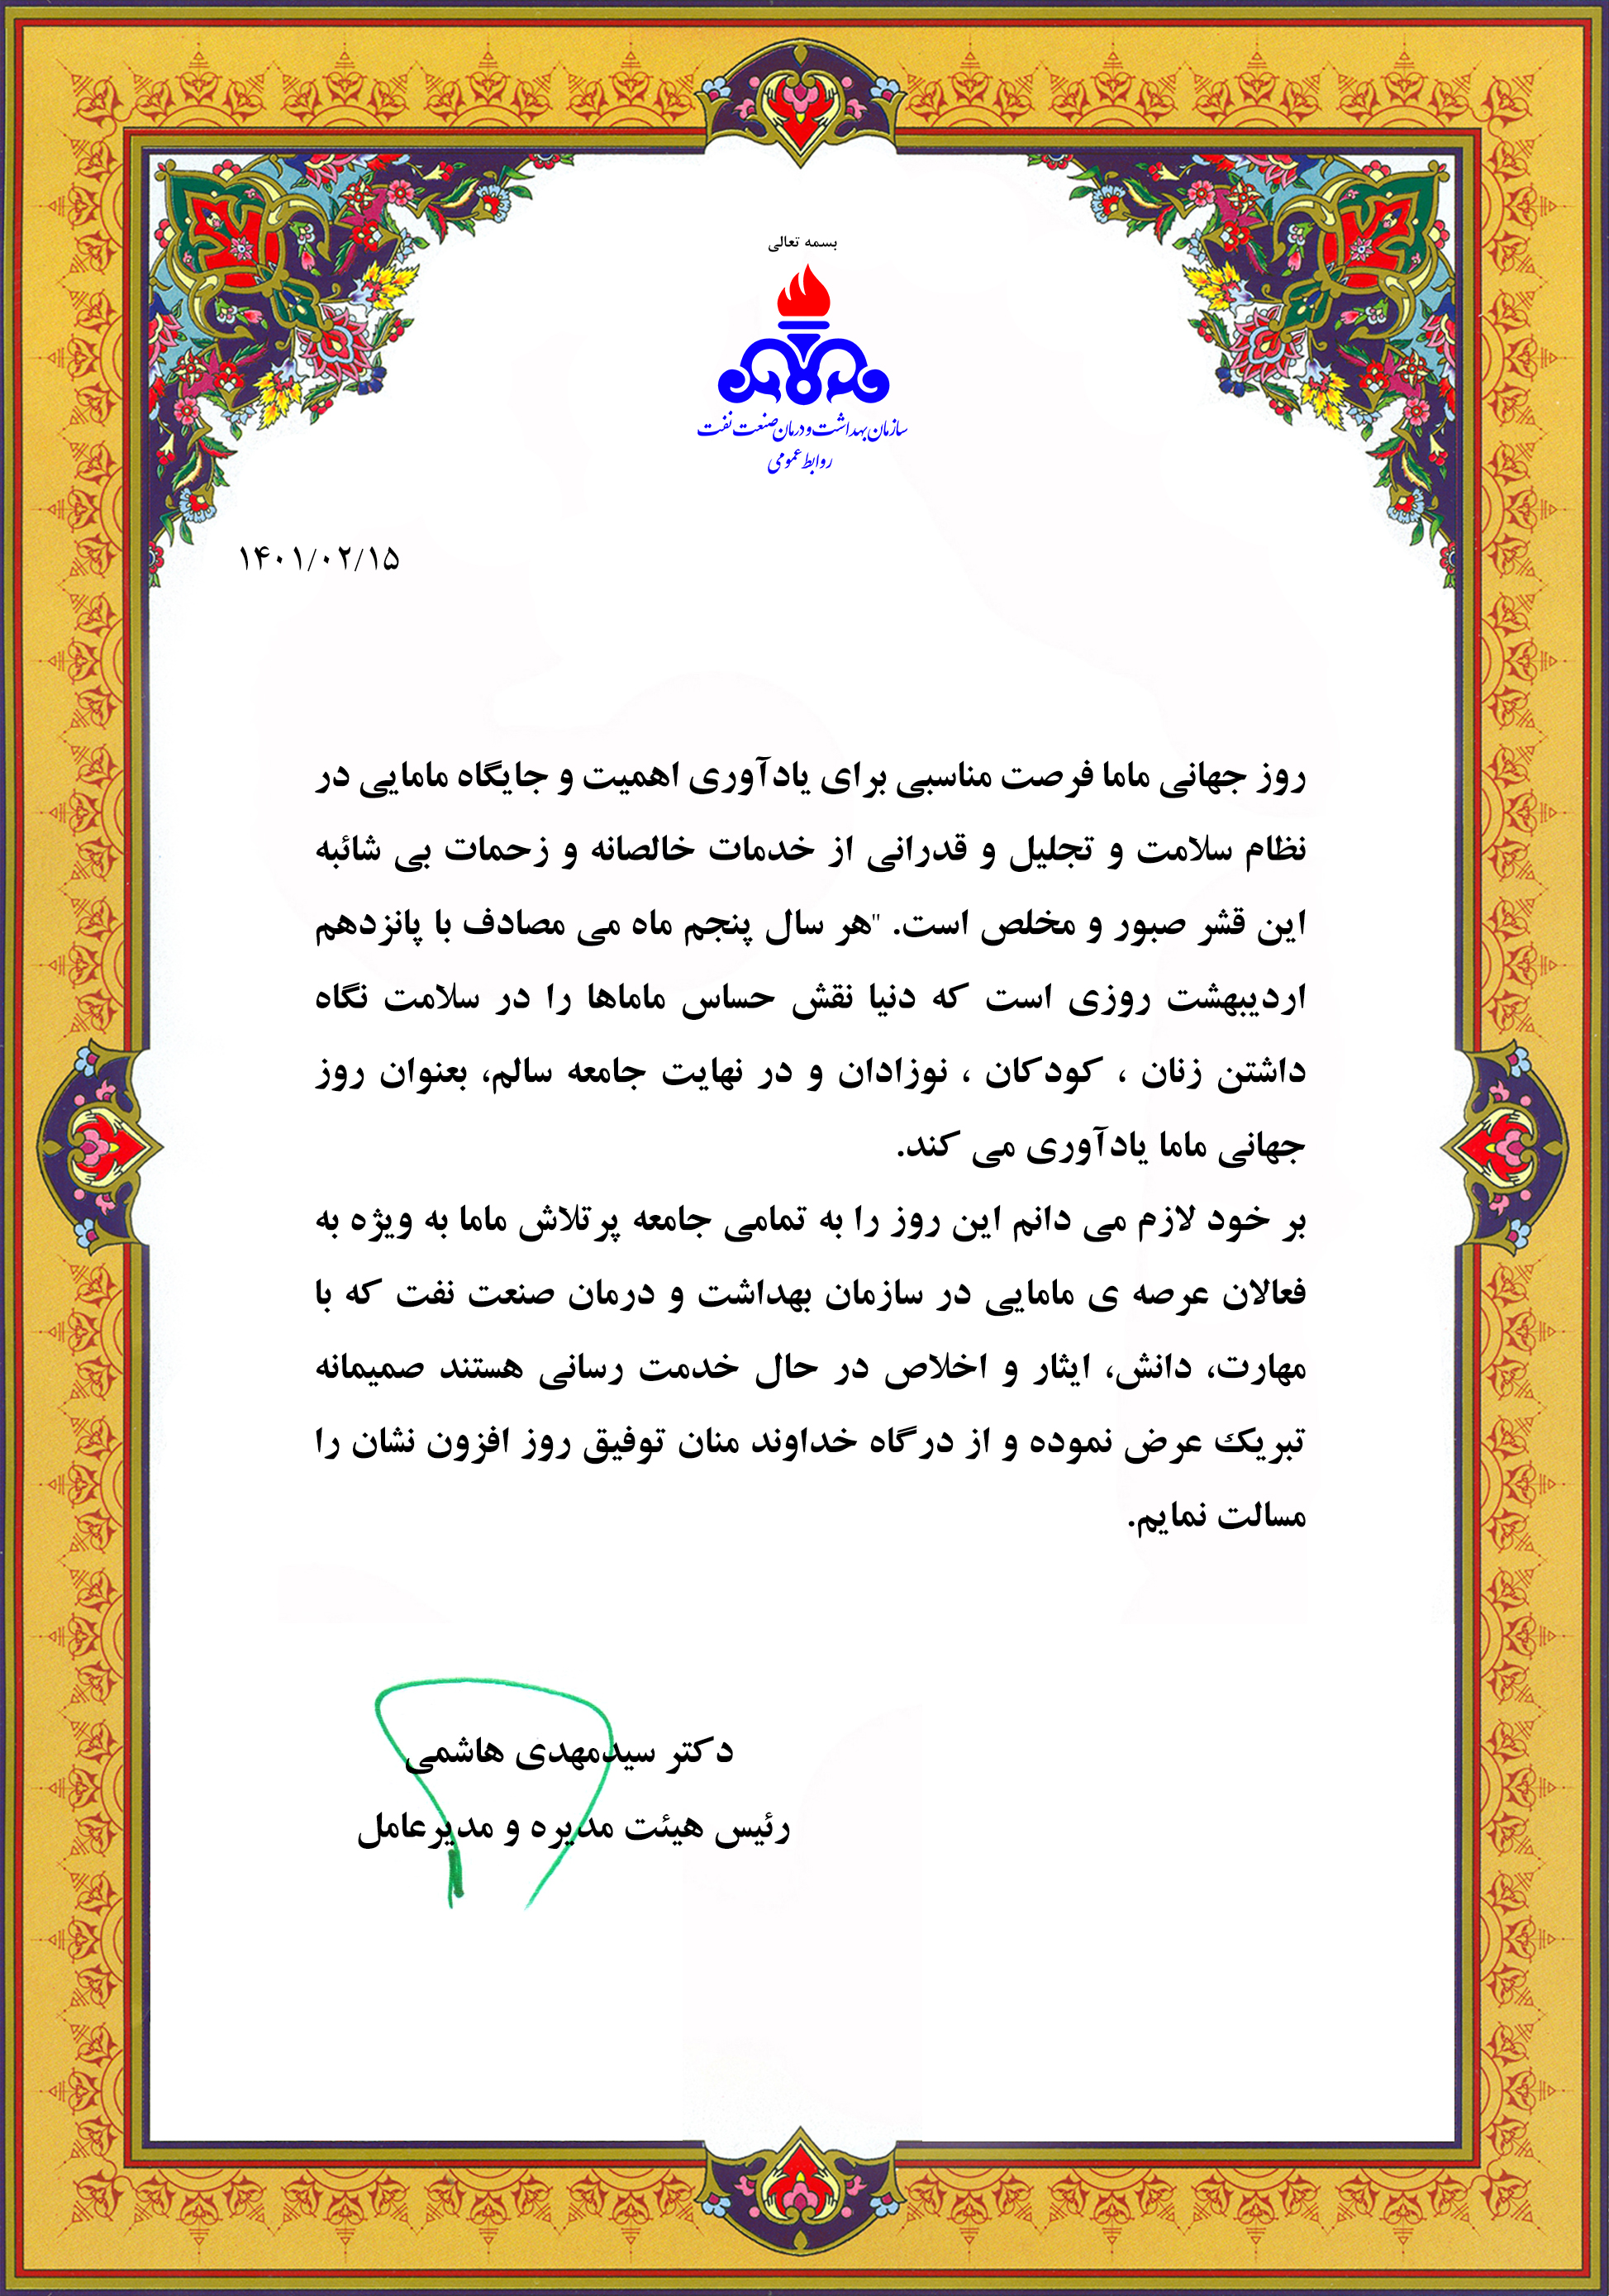 بسمه تعالی
سازمان بهداشت و درمان صنعت نفت
روابط عمومی
۱۴۰۱/۰۲/۱۵
روز جهانی ماما فرصت مناسبی برای یادآوری اهمیت و جایگاه مامایی در
نظام سلامت و تجلیل و قدرانی از خدمات خالصانه و زحمات بی شائبه
این قشر صبور و مخلص است. "هر سال پنجم ماه می مصادف با پانزدهم
اردیبهشت روزی است که دنیا نقش حساس ماماها را در سلامت نگاه
داشتن زنان ، کودکان ، نوزادان و در نهایت جامعه سالم، بعنوان روز
جهانی ماما یادآوری می کند.
بر خود لازم می دانم این روز را به تمامی جامعه پرتلاش ماما به ویژه به
فعالان عرصه ی مامایی در سازمان بهداشت و درمان صنعت نفت که با
مهارت، دانش، ایثار و اخلاص در حال خدمت رسانی هستند صمیمانه
تبریک عرض نموده و از درگاه خداوند منان توفیق روز افزون نشان را
مسالت نمایم.
دکتر سیدمهدی هاشمی
رئیس هیئت مدیره و مدیرعامل